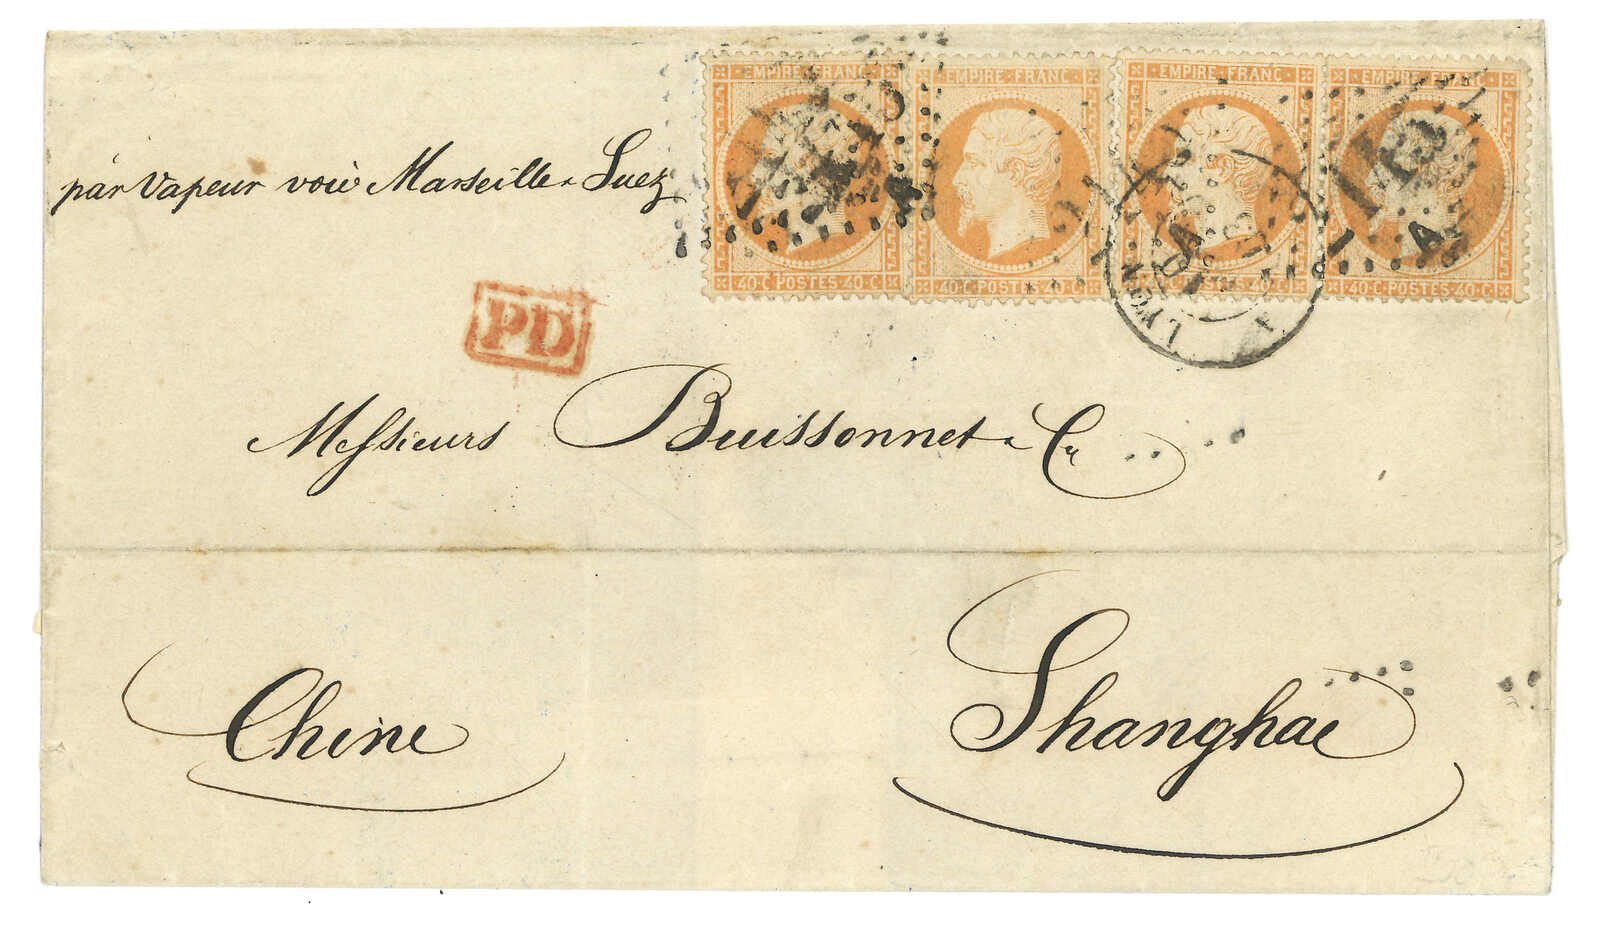 EMPIRE · FRANC · EMPIRE · FRANC · EMPIRE · FRANC · EMPIRE · FRANC ·
40 · C POSTES · 40 · C 40 · C POSTES · 40 · C 40 · C POSTES · 40 · C 40 · C POSTES · 40 · C
par Vapeur voie Marseille & Suez
LYON
PD
Messieurs Buissonnet & Cie
Chine Shanghae